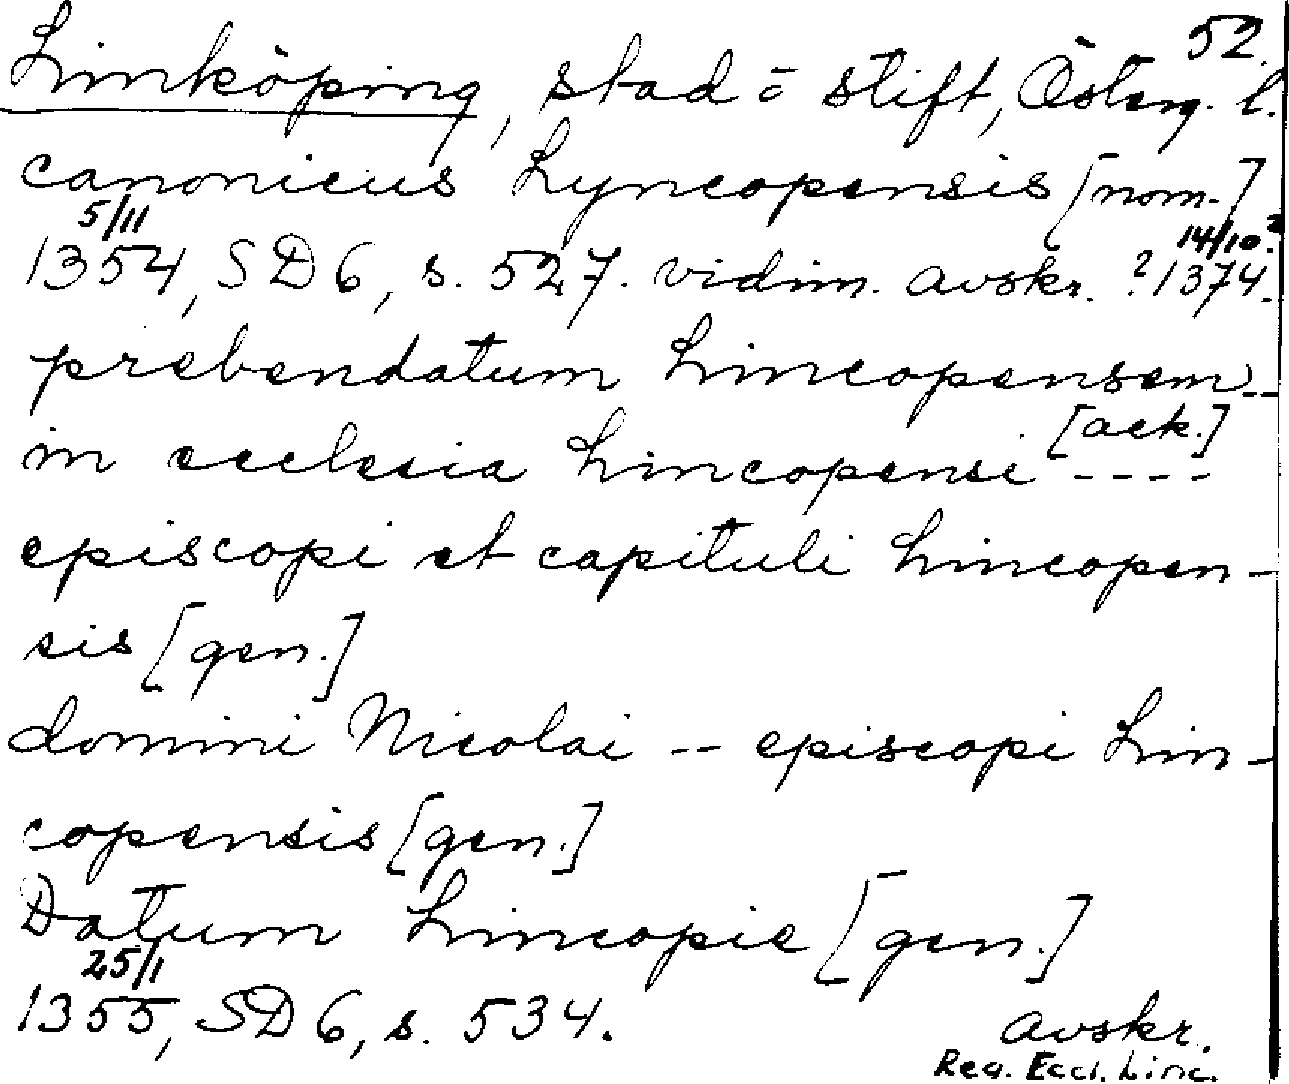 52.
Linköping, stad = stift, Österg. l.
canonicus Lyncopensis [nom.]
5/11 14/10?
1354, SD 6, s. 527. vidim. avskr. ? 1374.
prebendatum Lincopensem --
[ack.]
in ecclesia Lincopensi ----
episcopi et capituli Lincopen-
sis [gen.]
domini Nicolai -- episcopi Lin-
copensis [gen.]
Datum Lincopie [gen.]
25/1
1355, SD 6, s. 534. avskr.
Reg. Eccl. Linc.